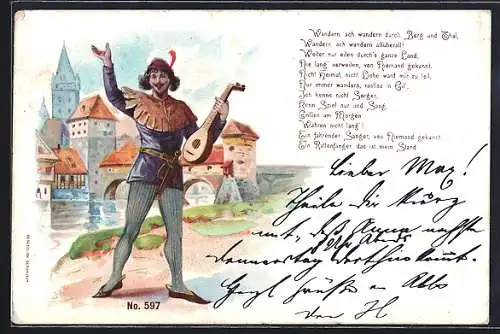 Wandern, ach wandern durch Berg und Thal,
Wandern, ach wandern allüberall!
Weiter nur eilen durch's ganze Land,
Nie lang' verweilen, von Niemand gekannt.
Nicht Heimat, nicht Liebe ward mir zu teil,
Nur immer wandern, rastlos in Eil'.
Ich kenne nicht Sorgen,
Denn Spiel nur und Sang,
Grillen am Morgen
Währen nicht lang'!
Ein fahrender Sänger, von Niemand gekannt,
Ein Rattenfänger das ist mein Stand.
Lieber Max!
Theile dir kurz
mit, daß Anna nächste
Abends
donnerstag
Grüße
No. 597